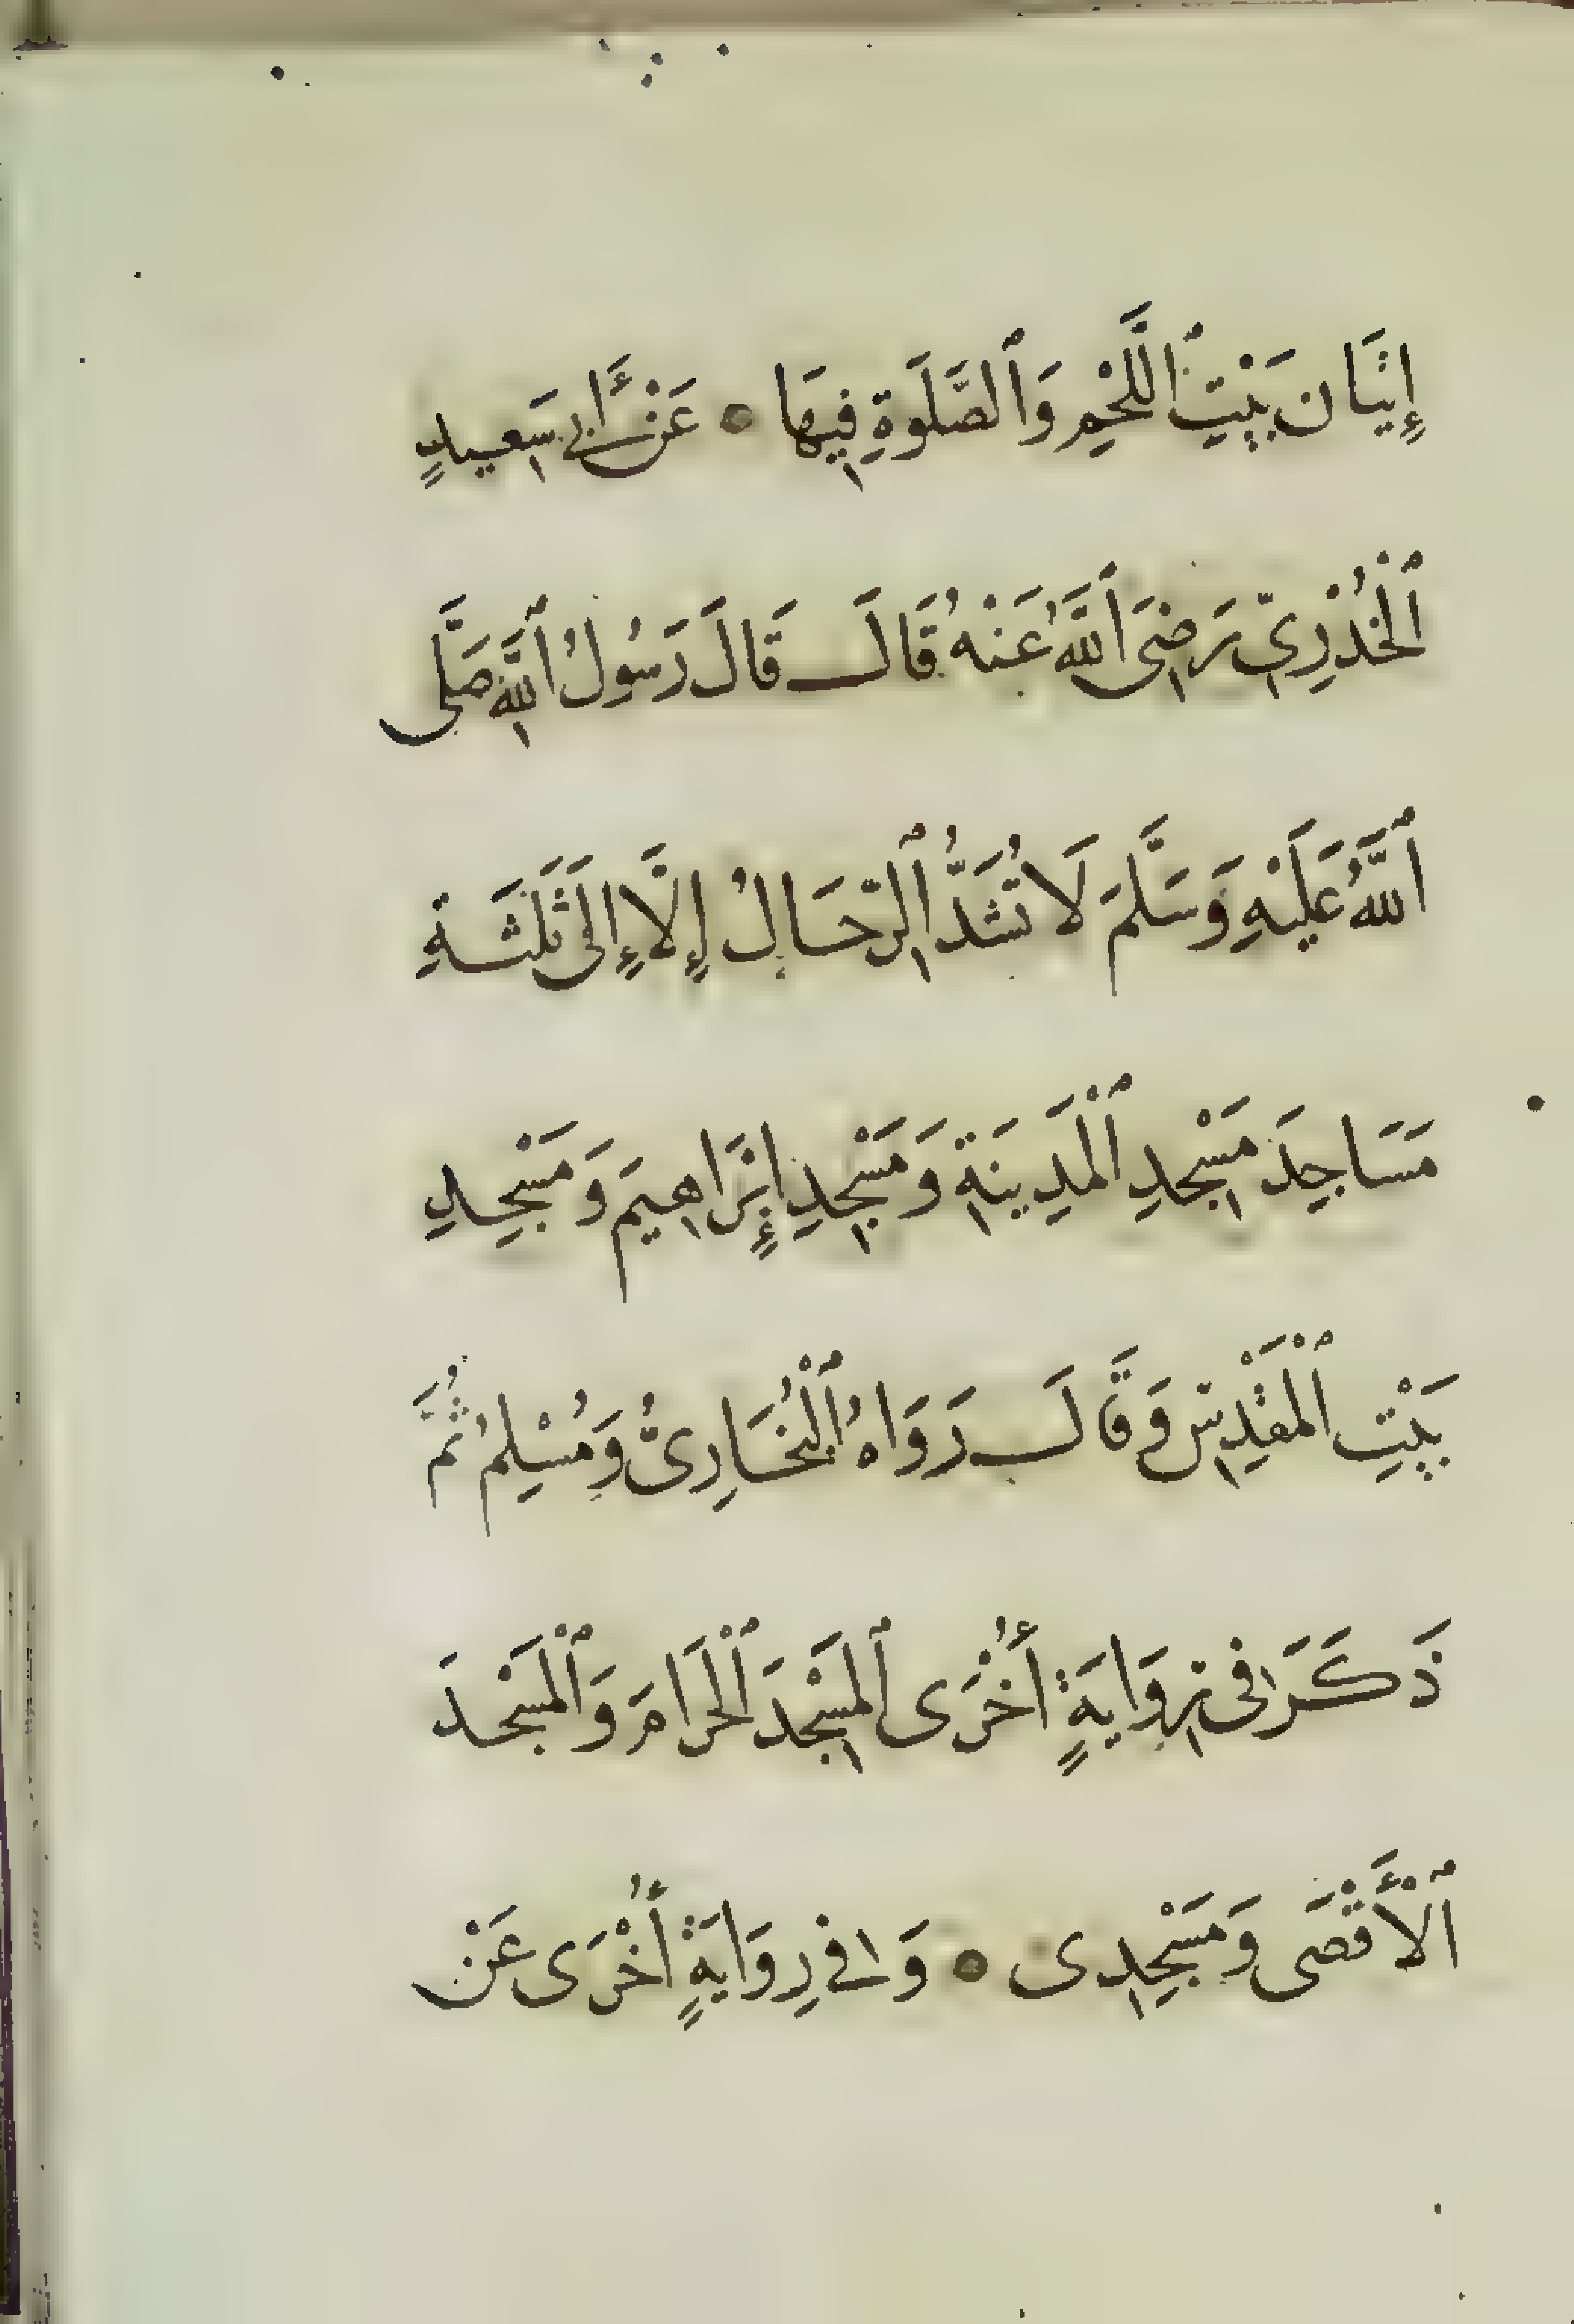 إِتْيَان بَيْتِ ٱللَّحْمِ وَٱلصَّلَوةِ فِيهَا ● عَنْ أَبِى سَعِيدٍ
ٱلْخُذْرِىِّ رَضِىَ ٱللَّهُ عَنْهُ قَالَ قَالَ رَسُولُ ٱللَّهِ صَلَّى
ٱللَّهُ عَلَيْهِ وَسَلَّمَ لَا تُشَدُّ ٱلرِّحَالُ إِلَّا إِلَى ثَلَثَةِ
مَسَاجِدَ مَسْجِدِ ٱلْمَدِينَةِ وَمَسْجِدِ إِبْرَاهِيمَ وَمَسْجِدِ
بَيْتِ ٱلْمَقْدِسِ وَقَالَ رَوَاهُ ٱلْبُخَارِىُّ وَمُسْلِمُ ثُمَّ
ذَكَرَ فِى رِوَايَةٍ أُخْرَى ٱلْمَسْجِدَ ٱلْحَرَامَ وَٱلْمَسْجِدَ
ٱلْأَقْصَى وَمَسْجِدِى ● وَفِى رِوَايَةٍ أُخْرَى عَنْ